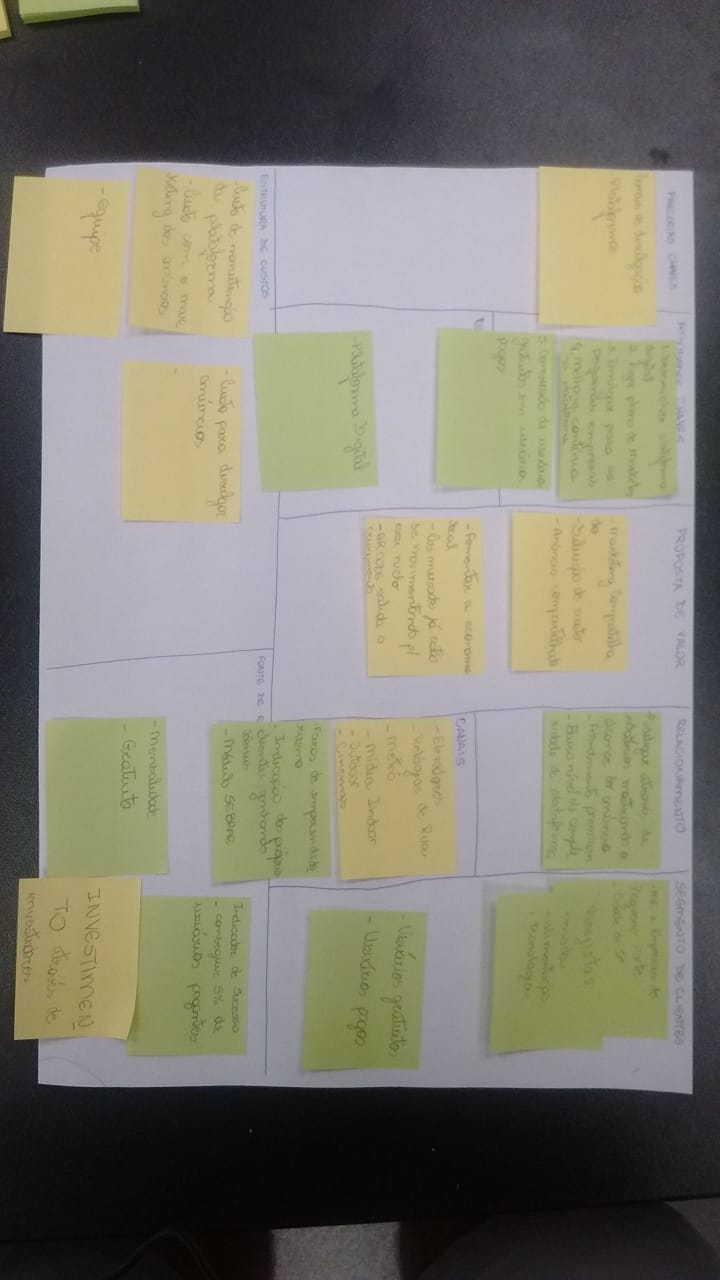 PARCERIAS CHAVES
de divulgação
- Plataformas
ATIVIDADES CHAVES
1. Desenvolver plataforma
digital
2. plano de marketing
3. Divulgar para as
pequenas empresas
4. melhoria contínua
na plataforma
5. Conversão de usuários
gratuitos em usuários
pagos
- Plataforma Digital
PROPOSTA DE VALOR
- Marketing Compartilha
do
- Diluição de custo
- Anúncio compartilhado
- Fomentar a economia
local
- Os mercados já estão
se movimentando p/
esse
- valida o
RELACIONAMENTO
através de
relatórios mostrando o
alcance anúncio
- Atendimento premium
- Baixo nível de comple
xidade da plataforma
CANAIS
- Elevadores
- Relógios de Rua
- Metrô
- Mídia Indoor
- Outdoor
- Cinemas
- Feiras de empreendedo
rismo
- Indicação dos próprios
clientes ganhando
bônus
- Módulo SEBRAE
SEGMENTO DE CLIENTES
- ME e Empresas de
Pequeno Porte
- Cidade de SP
Varejistas
• moda
• alimentação
• tecnologia
- Usuários gratuitos
- Usuários pagos
ESTRUTURA DE CUSTOS
- Custo de manutenção
da plataforma
- Custo com o mar
keting dos anúncios
- equipe
- Custo para divulgar
anúncios
-
FONTE DE
- Mensalidade
- Gratuito
Indicador de Sucesso
- conseguir 5% de
usuários pagantes
INVESTIMEN
TO através de
investidores